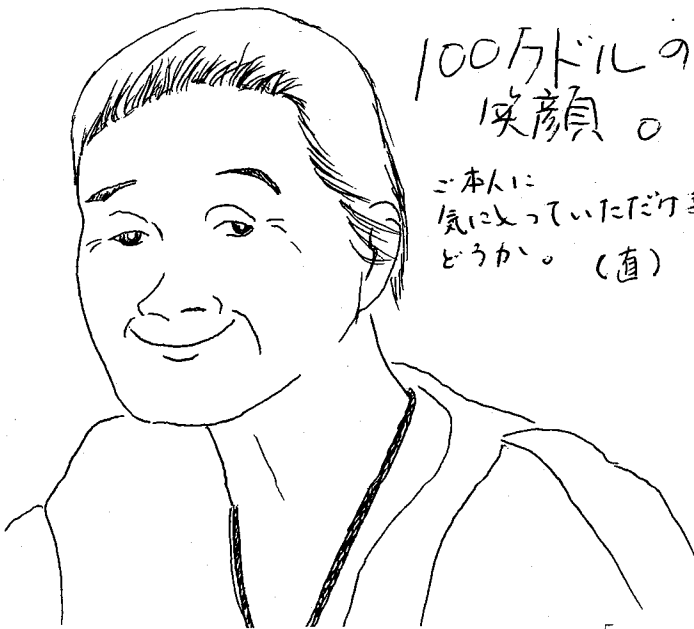 100万ドルの
笑顔。
ご本人に
気に入っていただけ
どうか。 (直)